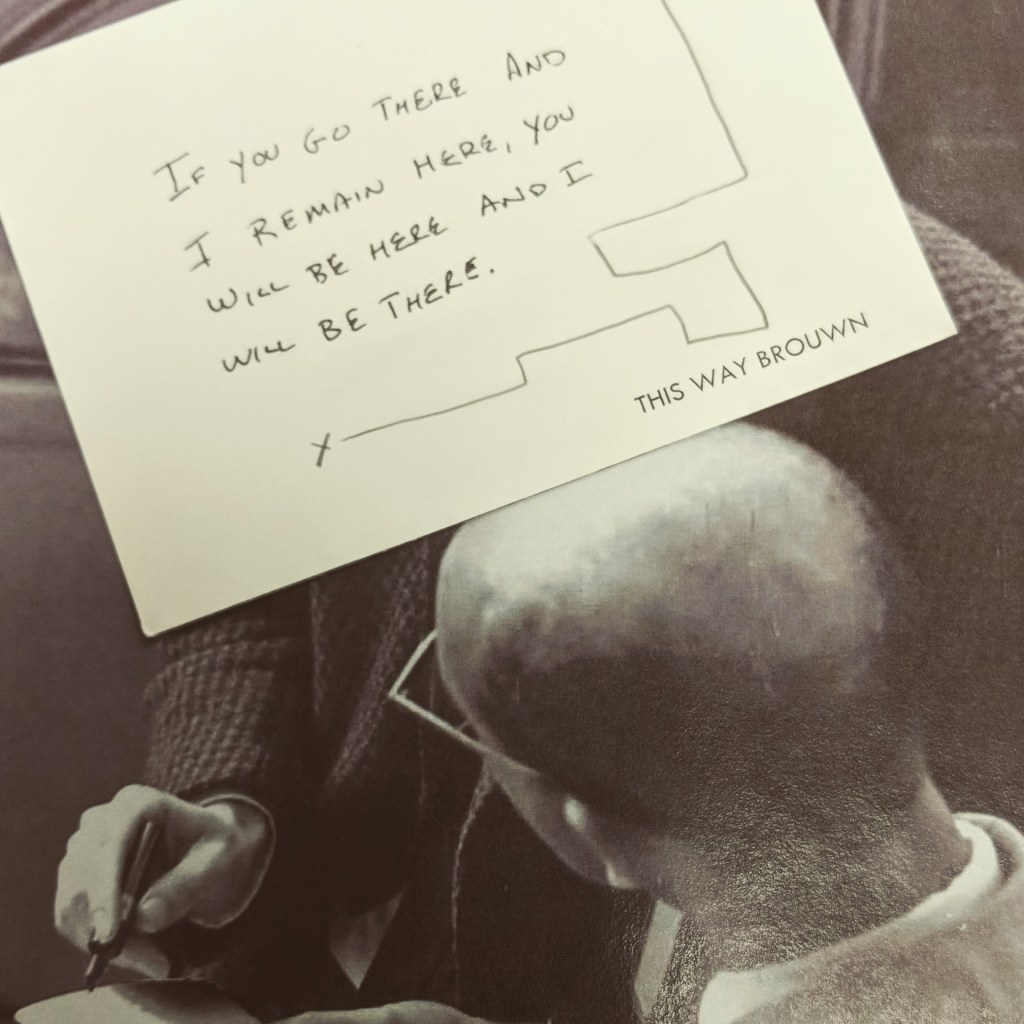 IF YOU GO THERE AND
I REMAIN HERE, YOU
WILL BE HERE AND I
WILL BE THERE.
X
THIS WAY BROUWN